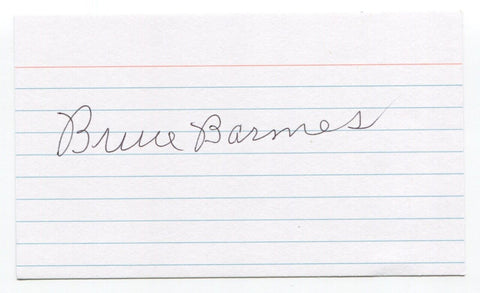 Bruce Barmes